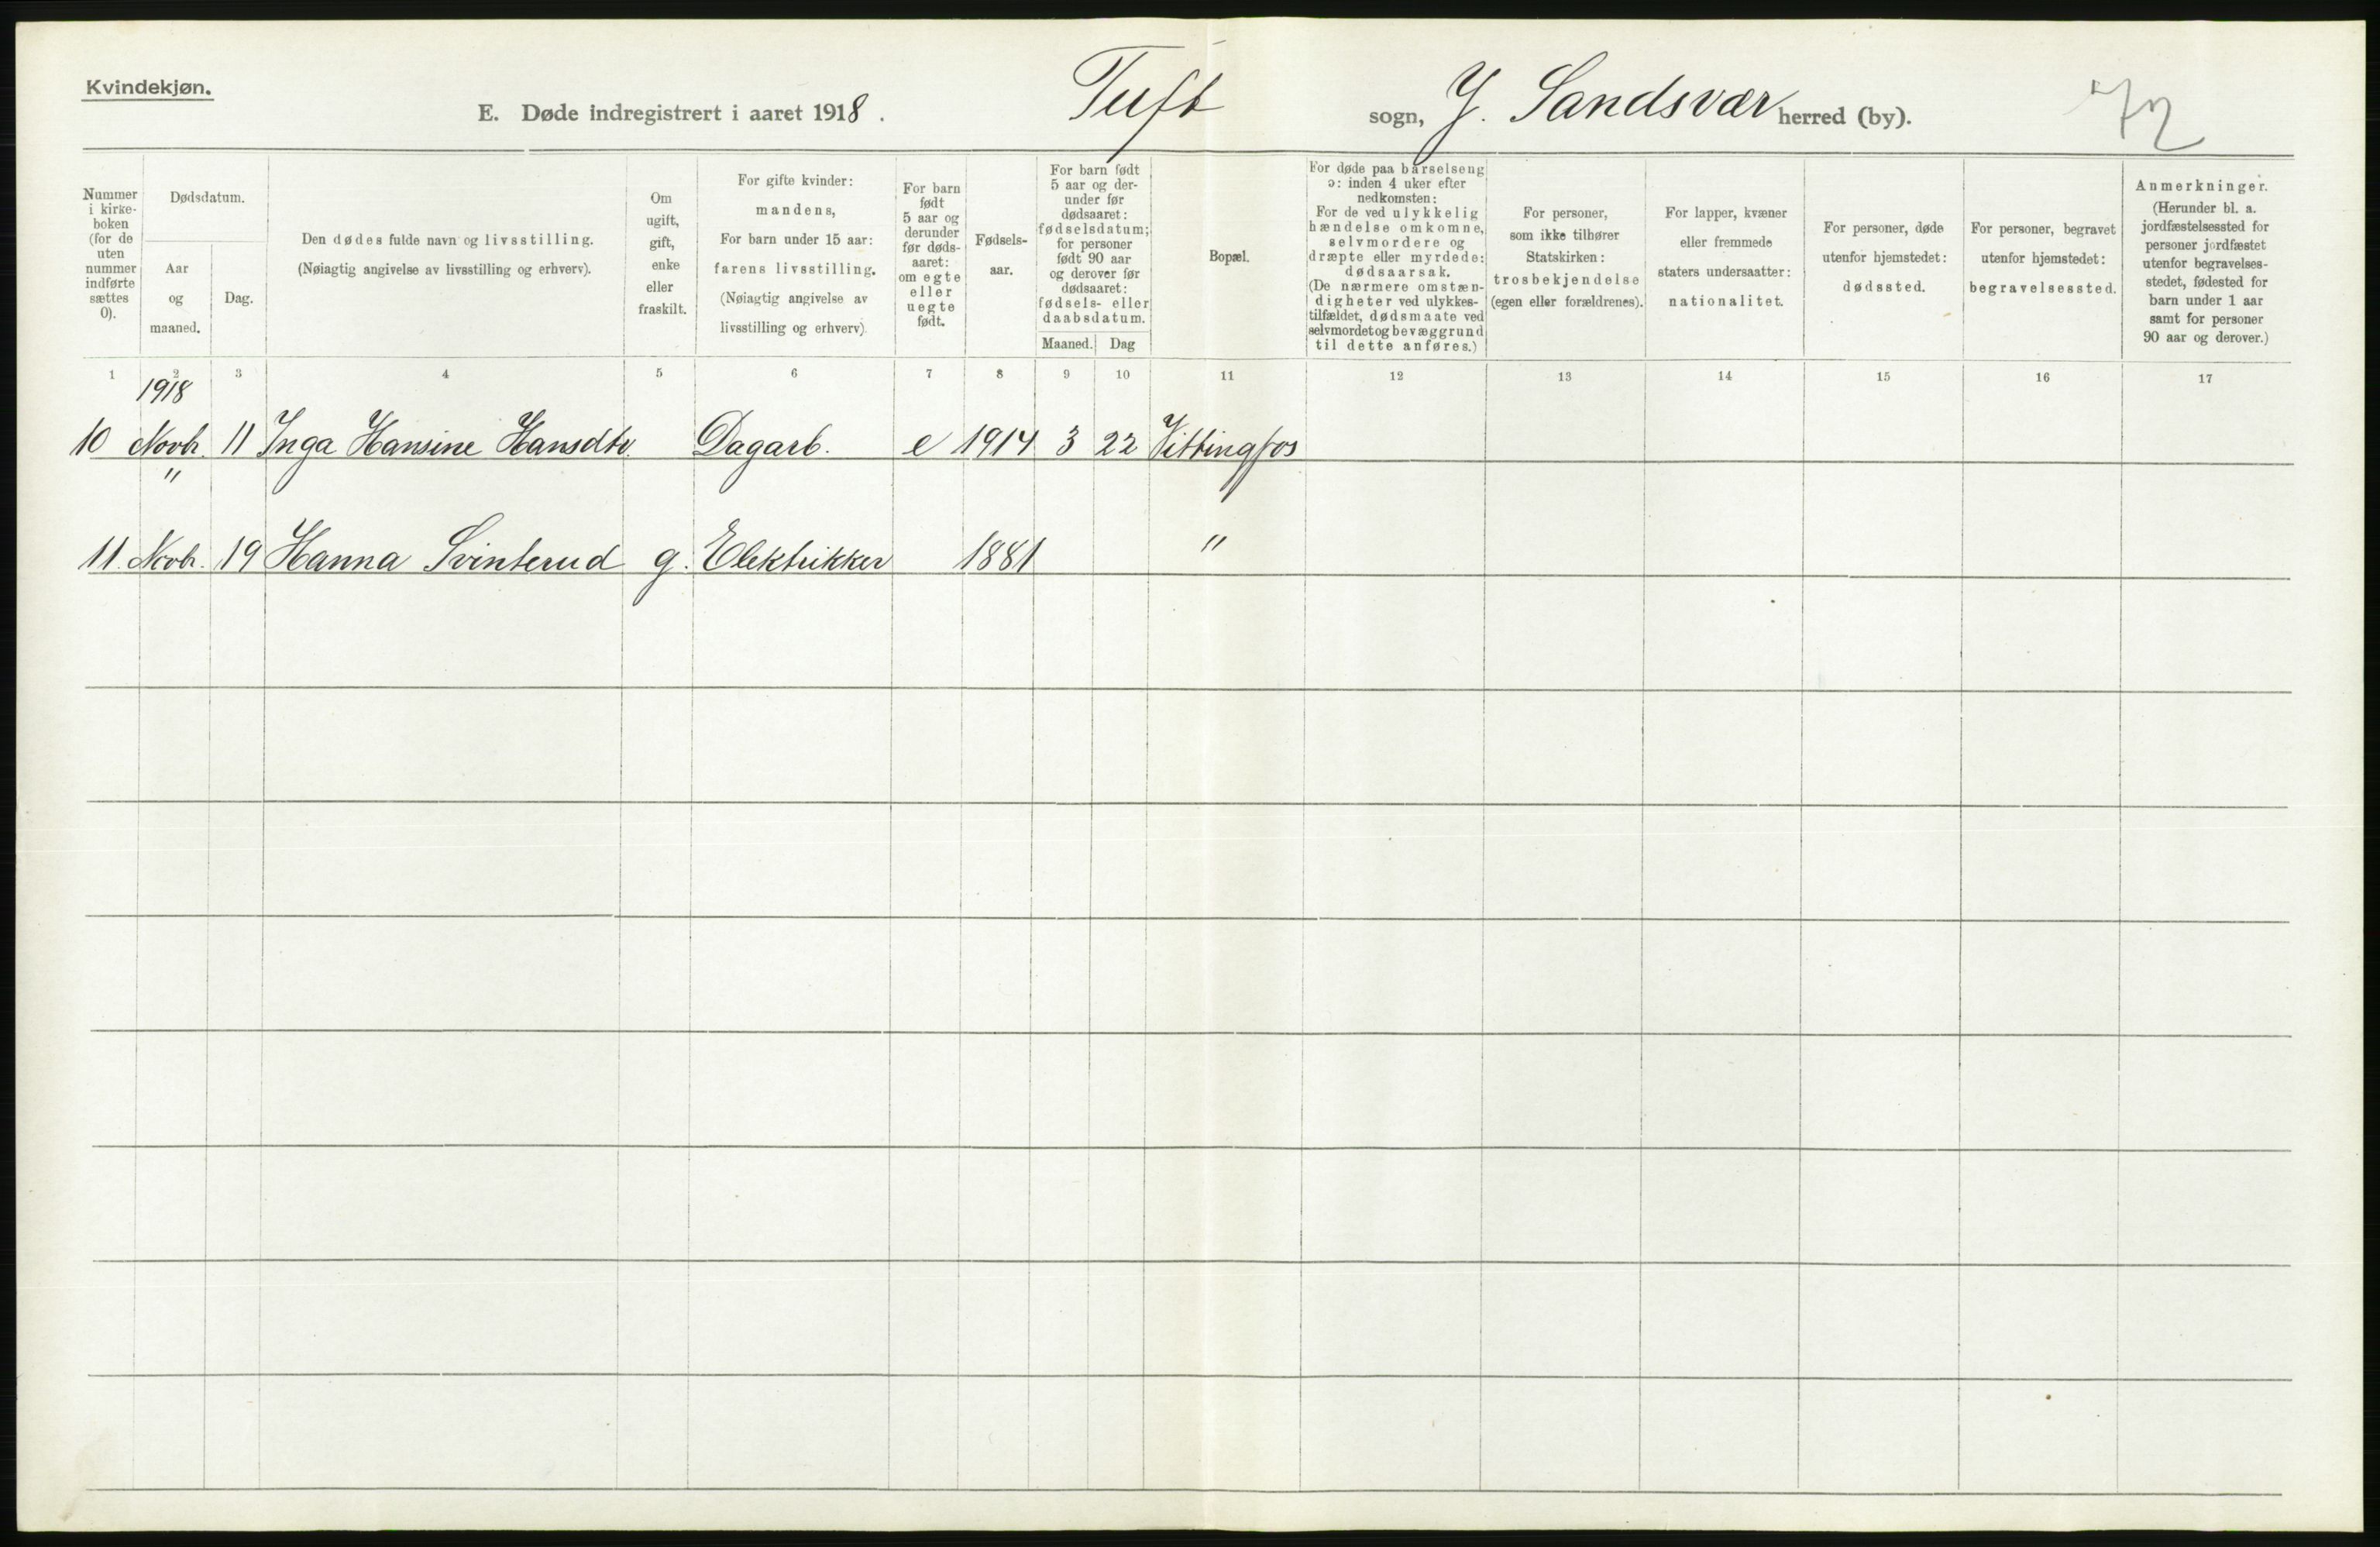 Kvindekjøn.
E. Døde indregistrert i aaret 1918. Tuft sogn, Y. Sandsvær herred (by). 72
Nummer i kirke-boken (for de uten nummer indførte sættes 0).
Dødsdatum.
Aar og maaned.
Dag.
Den dødes fulde navn og livsstilling.
(Nøiagtig angivelse av livsstilling og erhverv).
Om ugift, gift, enke eller fraskilt.
For gifte kvinder: mandens,
For barn under 15 aar: farens livsstilling.
(Nøiagtig angivelse av livsstilling og erhverv).
For barn født 5 aar og derunder før døds-aaret: om egte eller uegte født.
Fødsels-aar.
For barn født 5 aar og der-under før dødsaaret: fødselsdatum; for personer født 90 aar og derover før dødsaaret: fødsels- eller daabsdatum.
Maaned. Dag
Bopæl.
For døde paa barselseng ɔ: inden 4 uker efter nedkomsten:
For de ved ulykkelig hændelse omkomne, selvmordere og dræpte eller myrdede: dødsaarsak.
(De nærmere omstæn-digheter ved ulykkes-tilfældet, dødsmaate ved selvmordet og bevæggrund til dette anføres.)
For personer, som ikke tilhører Statskirken: trosbekjendelse (egen eller forældrenes).
For lapper, kvæner eller fremmede staters undersaatter: nationalitet.
For personer, døde utenfor hjemstedet: dødssted.
For personer, begravet utenfor hjemstedet: begravelsessted.
Anmerkninger.
(Herunder bl. a. jordfæstelsessted for personer jordfæstet utenfor begravelses-stedet, fødested for barn under 1 aar samt for personer 90 aar og derover.)
1 2 3 4 5 6 7 8 9 10 11 12 13 14 15 16 17
1918
10 Novbr. 11 Inga Hansine Hansdtr. Dagarb. e 1914 3 22 Vittingfos
"
11. Novbr. 19 Hanna Svinterud g. Elektrikker 1881 "